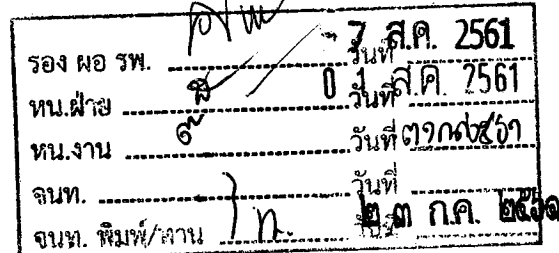 รอง ผอ รพ. วันที่ 7 ส.ค. 2561
หน.ฝ่าย วันที่ 0 1 ส.ค. 2561
หน.งาน วันที่
จนท. วันที่
จนท. พิมพ์/ทาน วันที่ ๒ ๓ ก.ค. ๒๕๖๑